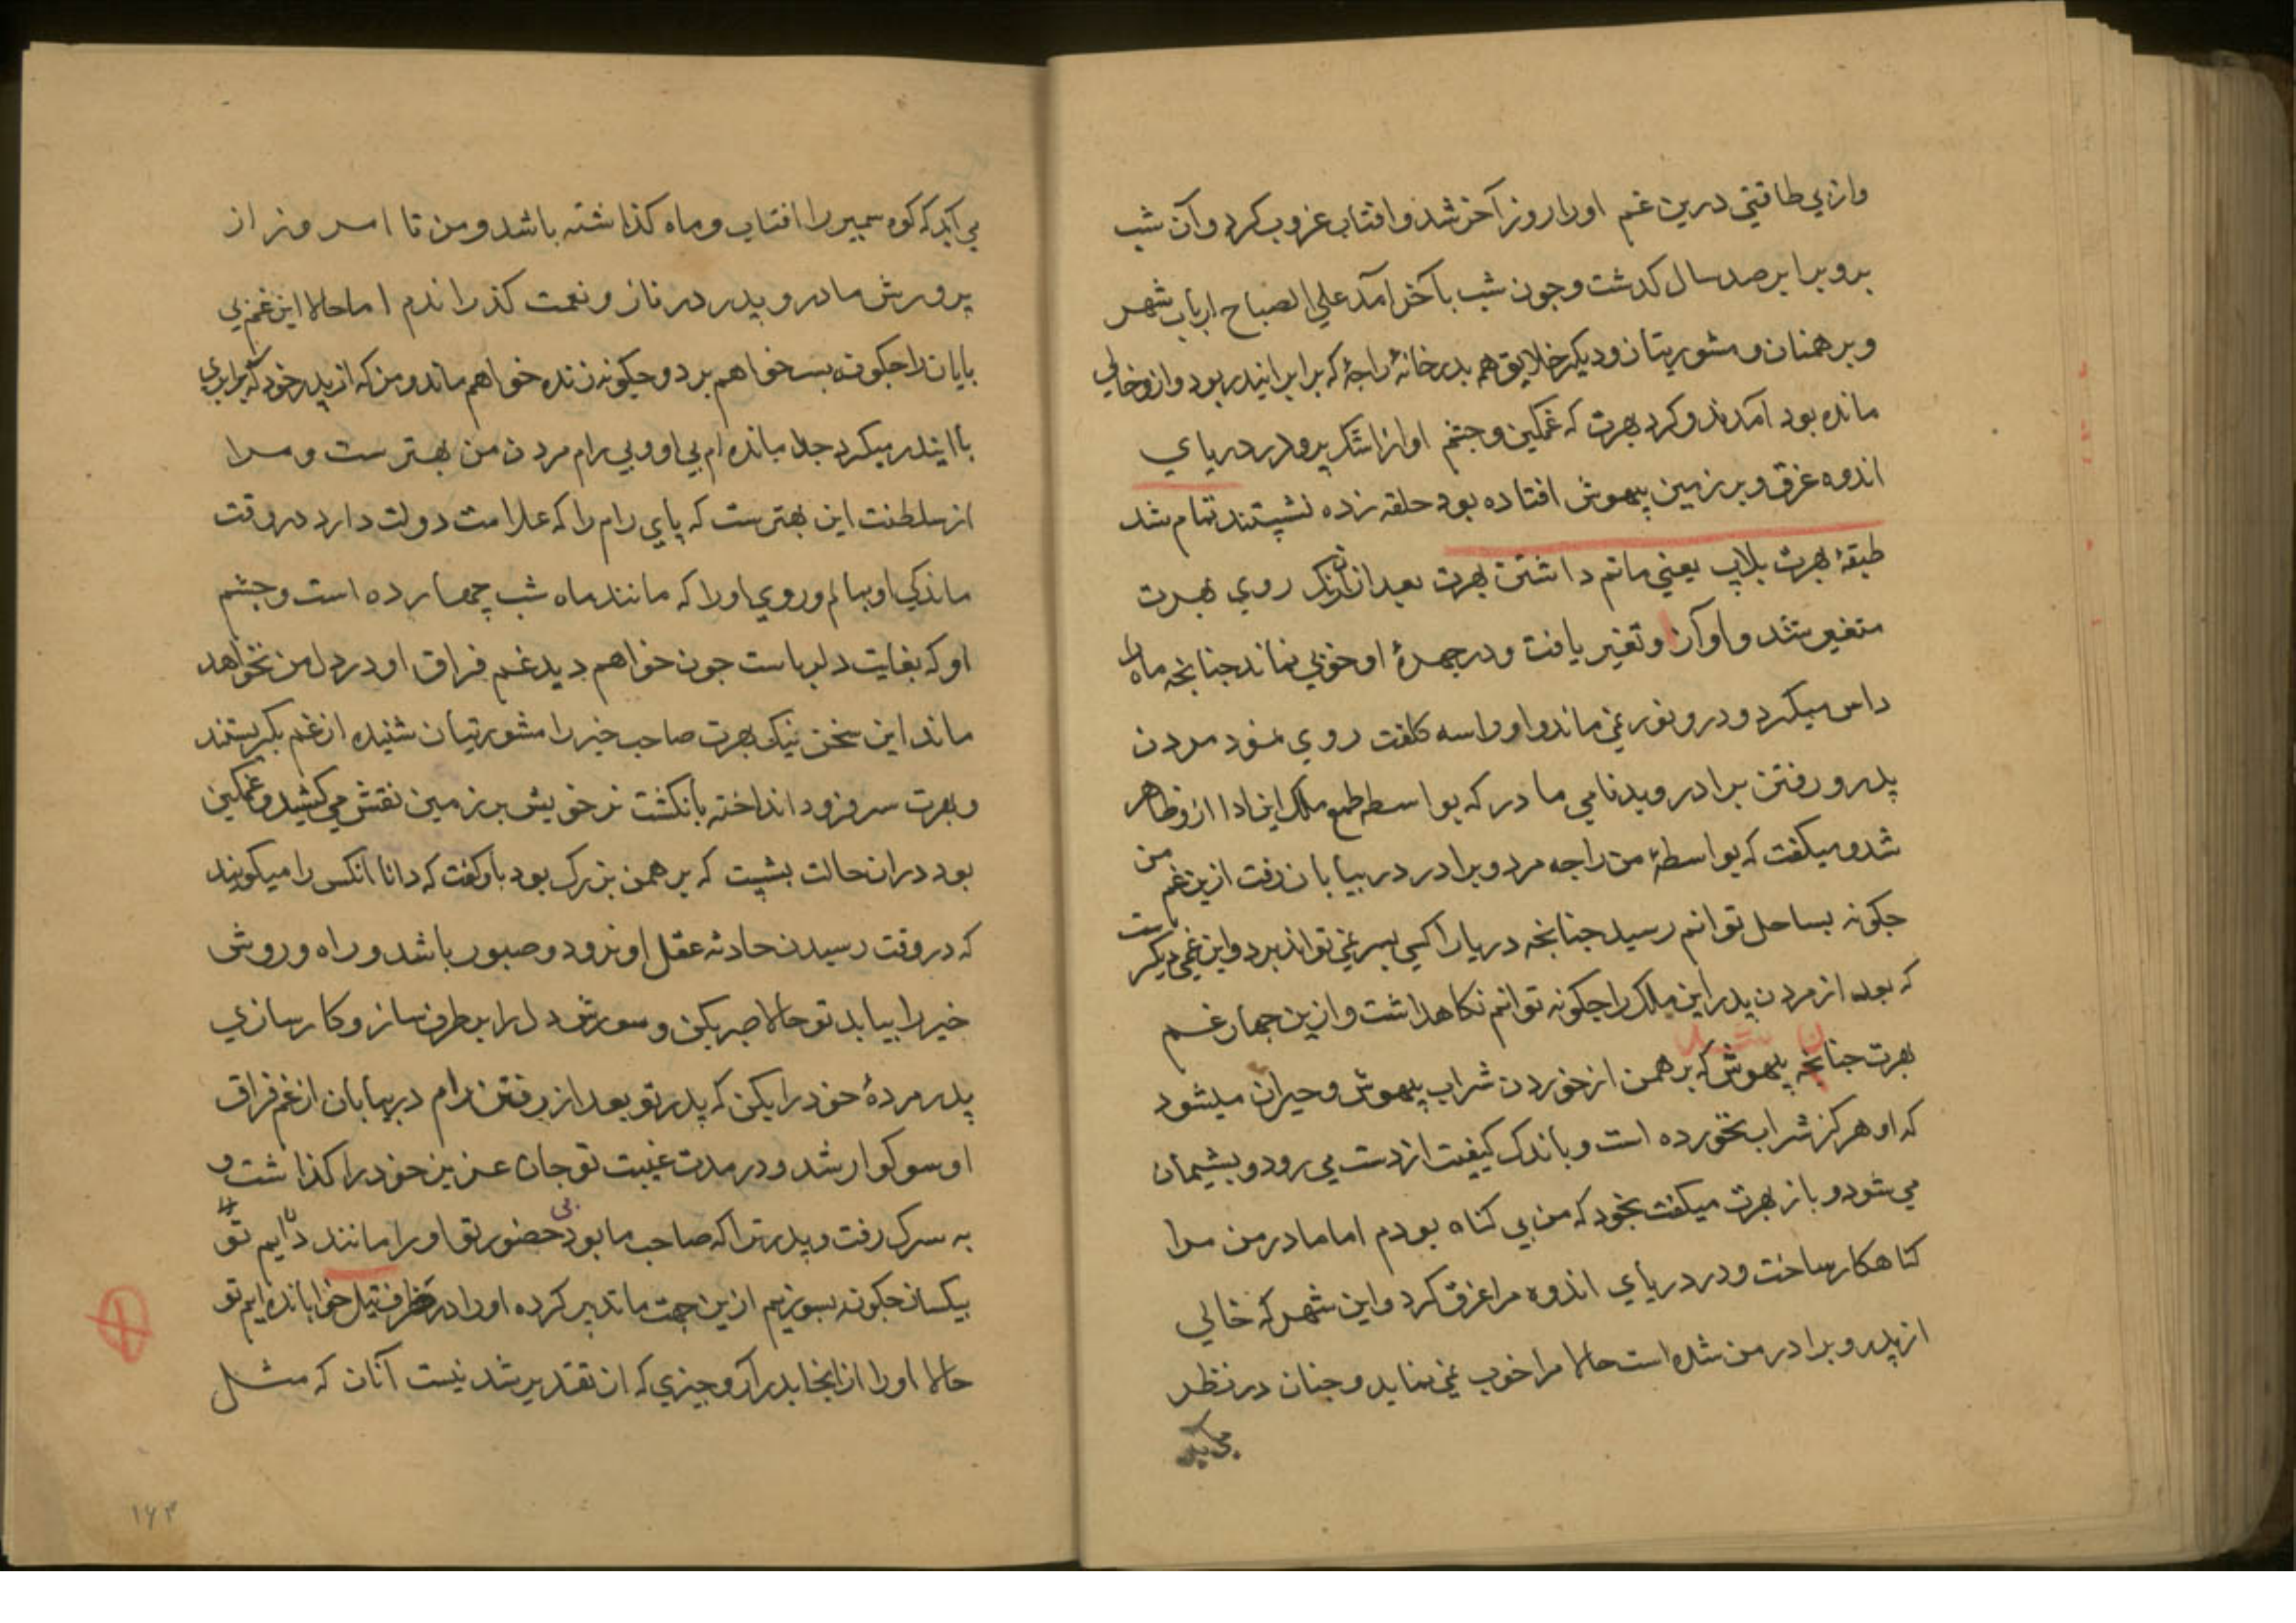 وازبي طاقتي درين غم اورا روز آخر شد و افتاب غروب كرد و آن شب
برو برابر صد سال كدشت و جون شب باخر آمد علي الصباح ارباب شهر
و برهمنان و مشوريتان و ديكر خلايق همه بدرخانهٔ راجهٔ كه برابر انيدر بود و ازو خالي
مانده بود آمدند و كرد بهرت كه غمكين و جشم او از اشك پر و در درياي
اندوه غرق و بر زمين بيهوش افتاده بود حلقه زده نشيتند تمام شد
طبقهٔ بهرت بلاپ يعني ماتم داشتن بهرت بعد ازان رنك روي بهرت
متغير شد و او آن و تغير يافت و در جهرهٔ او خوبي نماند جنانجه ماه را
داس ميكيرد و درو نور نمي ماند و او را سه كلفت روي نمود مردن
پدر و رفتن برادر و بدنامي مادر كه بواسطه طمع ملك اين ادا ازو ظاهر
شد و ميكفت كه بواسطهٔ من راجه مرد و برادر در بيابان رفت ازين غم من
جكونه بساحل توانم رسيد جنانجه دريا را كسي بسر نمي تواند برد و اين غمي ديكر ست
كه بعد از مردن پدر اين ملك را جكونه توانم نكاهداشت و ازين جهار غم
بهرت جنان بيهوش شد كه برهمن از خوردن شراب بيهوش و حيران ميشود
كه او هركز شراب نخورده است و باندك كيفيت از دست مي رود و پشيمان
مي شود و باز بهرت ميكفت بخود كه من بي كناه بودم اما مادر من مرا
كناهكار ساخت و در درياي اندوه مرا غرق كرد و اين شهر كه خالي
از پدر و برادر من شده است حالا مرا خوب نمي نمايد و جنان در نظر
مي آيد
مي آيد كه كوه سمير را افتاب و ماه كذاشته باشد و من تا امروز از
پرورش مادر و پدر در ناز و نعمت كذراندم اما حالا اين غم بي
پايان را جكونه بسر خواهم برد و جكونه زنده خواهم ماند و من كه از پدر خود كه برابري
با ايندر ميكرد جدا مانده ام بي او و بي رام مردن من بهترست و مرا
از سلطنت اين بهترست كه پاي رام را كه علامت دولت دارد در وقت
ماندكي او بمالم و روي او را كه مانند ماه شب چهارده است و جشم
او كه بغايت دلرباست جون خواهم ديد غم فراق او در دل من نخواهد
ماند اين سخن نيك بهرت صاحب خير را مشوريتيان شنيده از غم بكريستند
و بهرت سر فرود انداخته بانكشت نر خويش بر زمين نقش مي كشيد و غمكين
بود در ان حالت بشيت كه برهمن بزرك بود باو كفت كه دانا انكس را ميكويند
كه در وقت رسيدن حادثه عقل او نرود و صبور باشد و راه و روش
خير را بيابد تو حالا صبر بكن و سوزش دل را برطرف ساز و كارسازي
پدر مردهٔ خود را بكن كه پدر تو بعد از رفتن رام در بيابان از غم فراق
او سوكوار شد و در مدت غيبت تو جان عزيز خود را كذاشت و
به سرك رفت و پدر ترا كه صاحب ما بود بي حضور تو او را مانند دايم تو
بيكسان جكونه بسوزيم ازين جهت ما تدبير كرده او را در ظرف تيل خوابانده ايم تو
حالا او را از انجا بدر آر و جيزي كه از تقدير شد نيست آنان كه مثل
۱۶۳